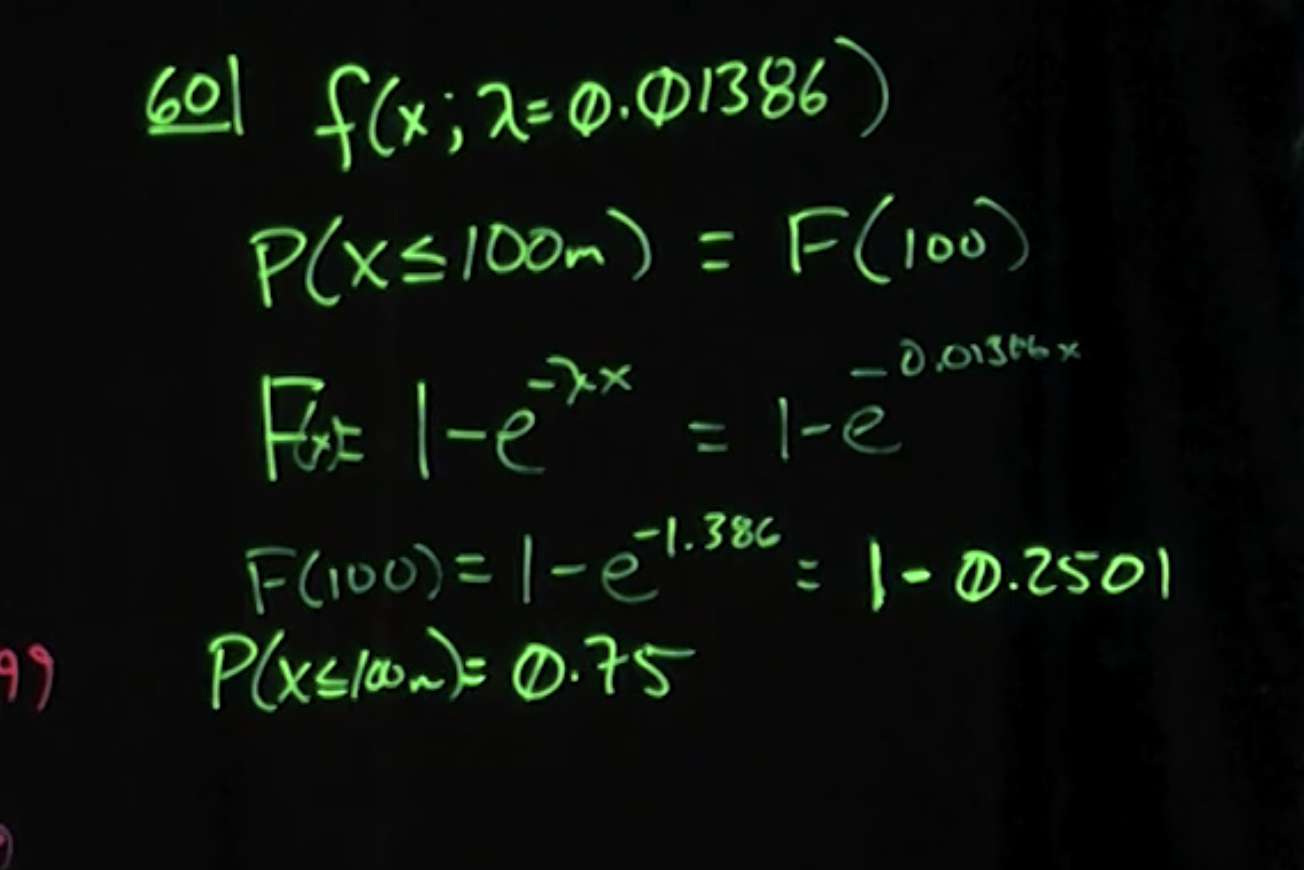 60| f(x; λ=0.01386)
P(X≤100m) = F(100)
F(x)= 1-e^{-λx} = 1-e^{-0.01386x}
F(100) = 1-e^{-1.386} = 1-0.2501
99 P(X≤100m)= 0.75